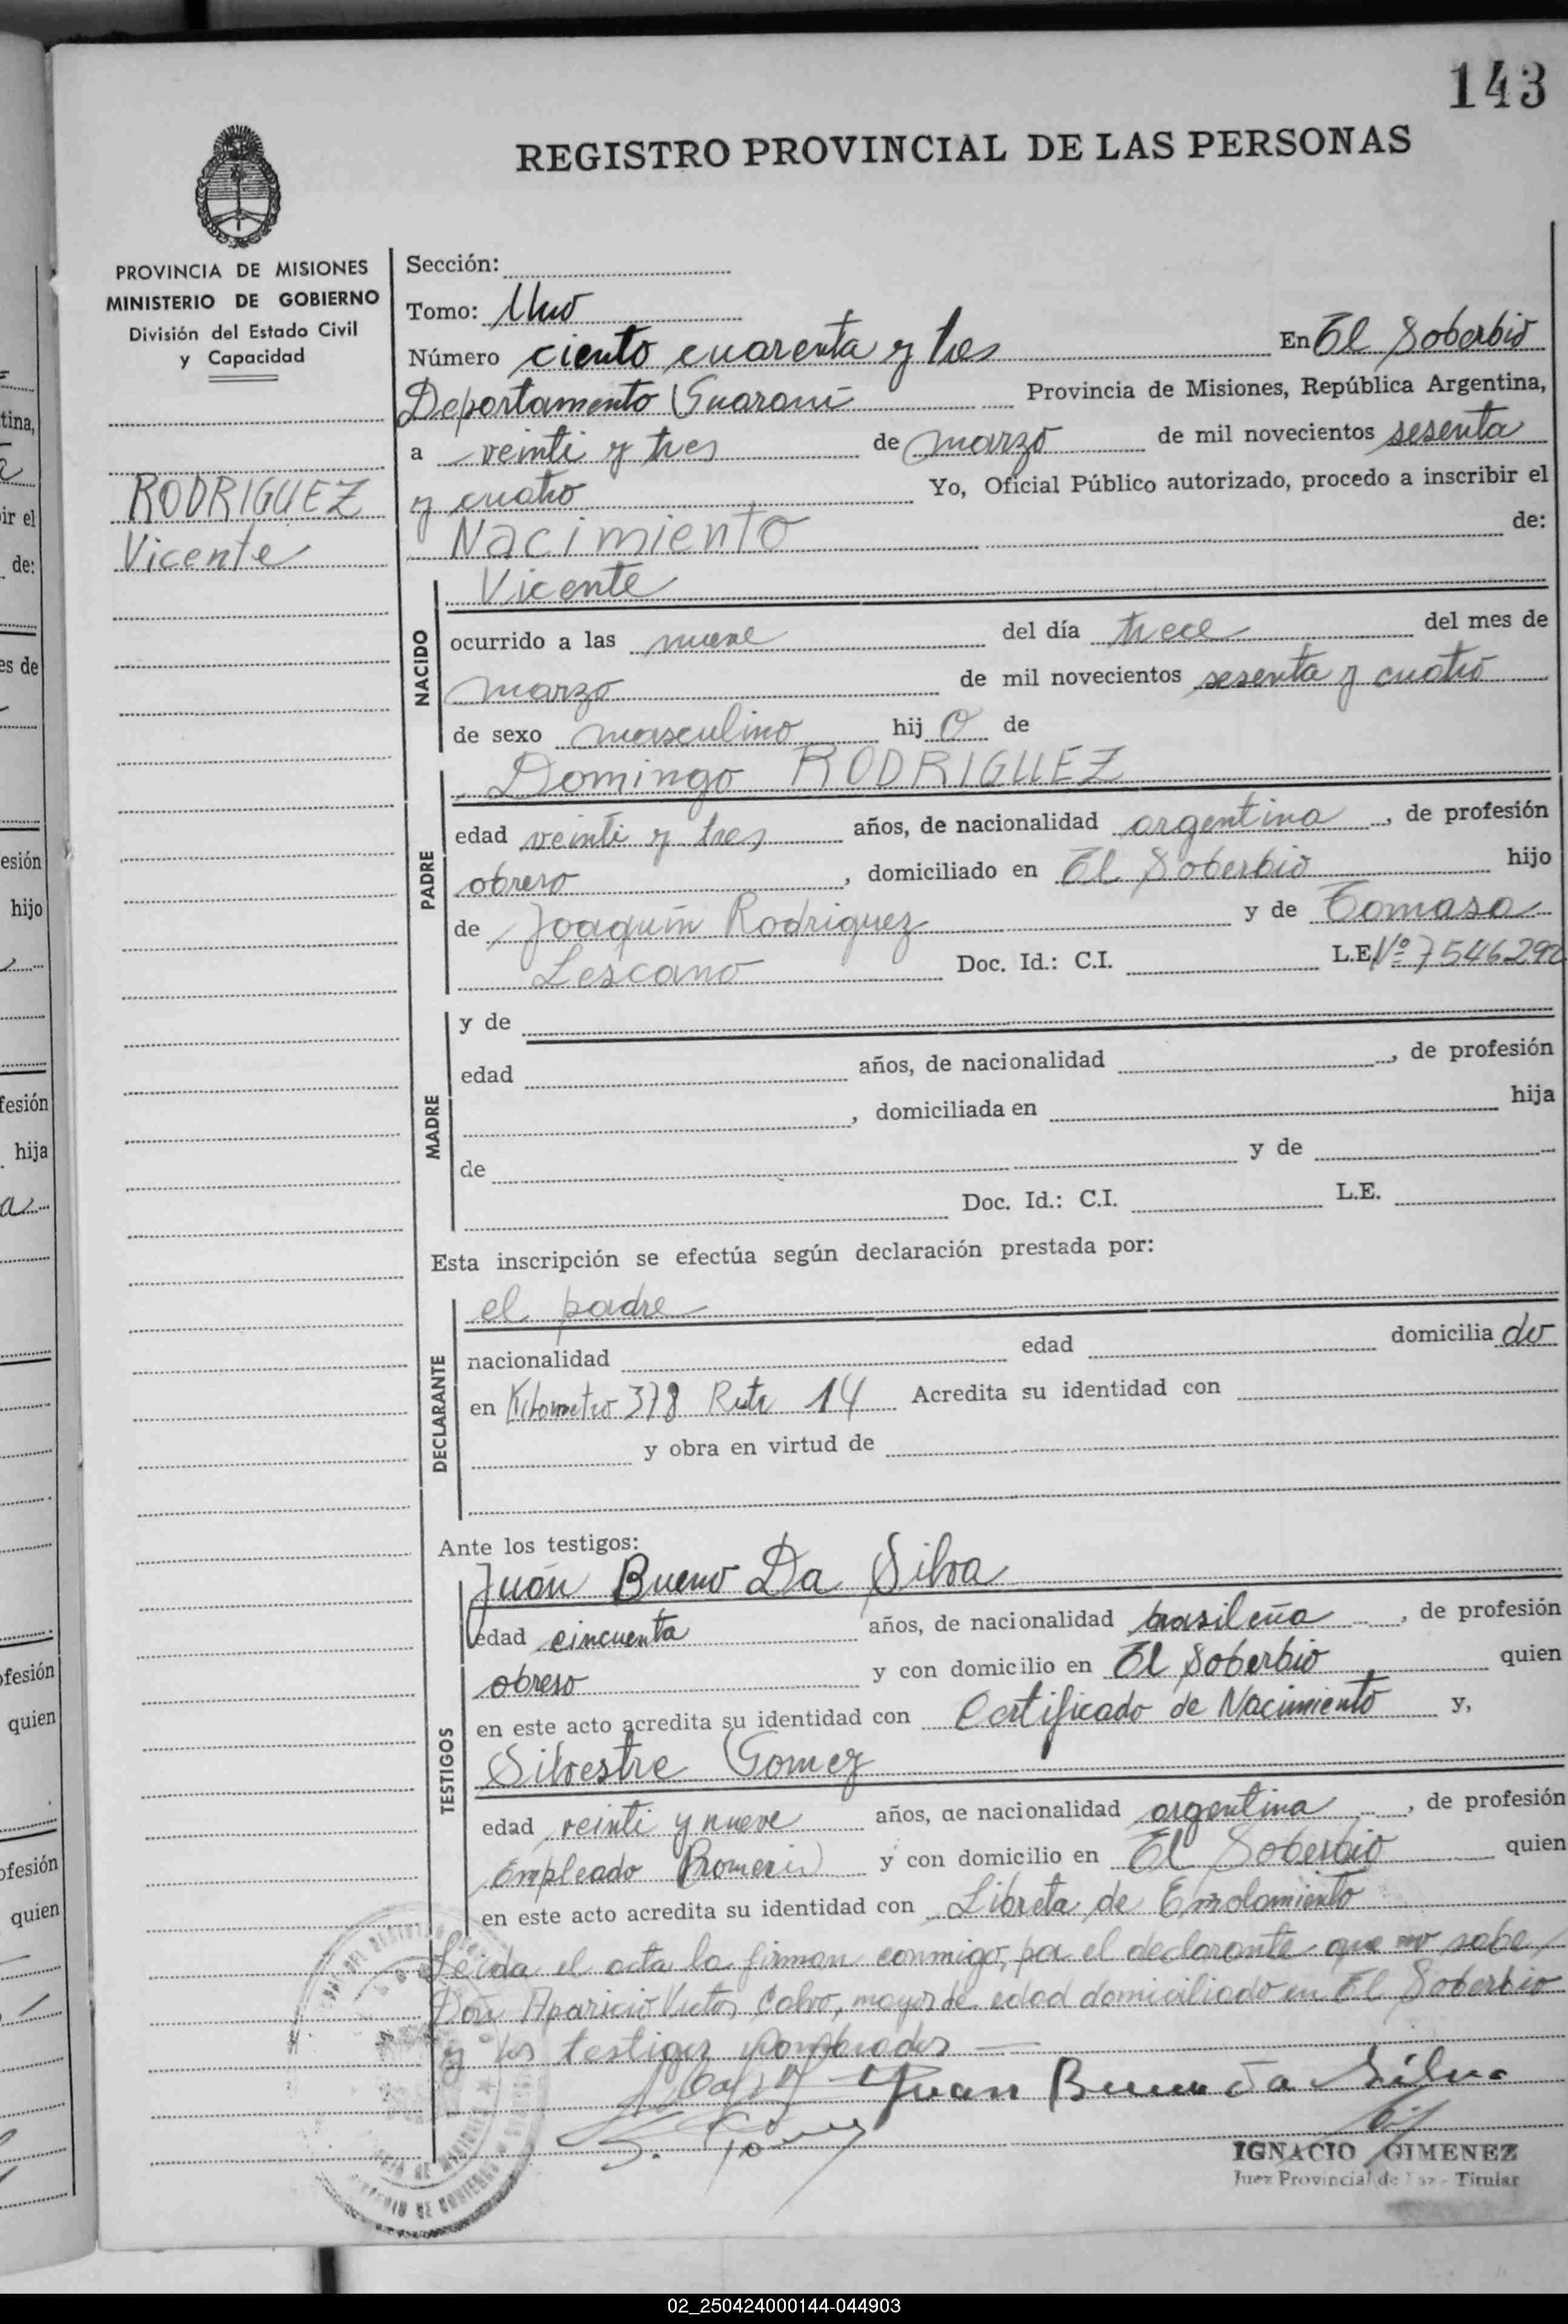 143
REGISTRO PROVINCIAL DE LAS PERSONAS
PROVINCIA DE MISIONES
MINISTERIO DE GOBIERNO
División del Estado Civil
y Capacidad
RODRIGUEZ
Vicente
Sección:
Tomo: Uno
Número ciento cuarenta y tres En El Soberbio
Departamento Guaraní Provincia de Misiones, República Argentina,
a veinti y tres de marzo de mil novecientos sesenta
y cuatro Yo, Oficial Público autorizado, procedo a inscribir el
Nacimiento de:
NACIDO
Vicente
ocurrido a las nueve del día trece del mes de
marzo de mil novecientos sesenta y cuatro
de sexo masculino hij o de
PADRE
Domingo RODRIGUEZ
edad veinti y tres años, de nacionalidad argentina, de profesión
obrero, domiciliado en El Soberbio hijo
de Joaquín Rodriguez y de Tomasa
Lescano Doc. Id.: C.I. L.E. Nº 7546292
MADRE
y de
edad años, de nacionalidad , de profesión
, domiciliada en hija
de y de
Doc. Id.: C.I. L.E.
Esta inscripción se efectúa según declaración prestada por:
DECLARANTE
el padre
nacionalidad edad domicilia do
en Kilometro 378 Ruta 14 Acredita su identidad con
y obra en virtud de
Ante los testigos:
TESTIGOS
Juan Bueno Da Silva
edad cincuenta años, de nacionalidad brasileña, de profesión
obrero y con domicilio en El Soberbio quien
en este acto acredita su identidad con Certificado de Nacimiento y,
Silvestre Gomez
edad veinti y nueve años, de nacionalidad argentina, de profesión
empleado y con domicilio en El Soberbio quien
en este acto acredita su identidad con Libreta de Enrolamiento
Leida el acta la firman conmigo, por el declarante que no sabe,
Don Aparicio Victor Calvo, mayor de edad domiciliado en El Soberbio
y los testigos nombrados
Juan Bueno da Silva
S. Gomez
IGNACIO GIMENEZ
Juez Provincial de Paz - Titular
02_250424000144-044903